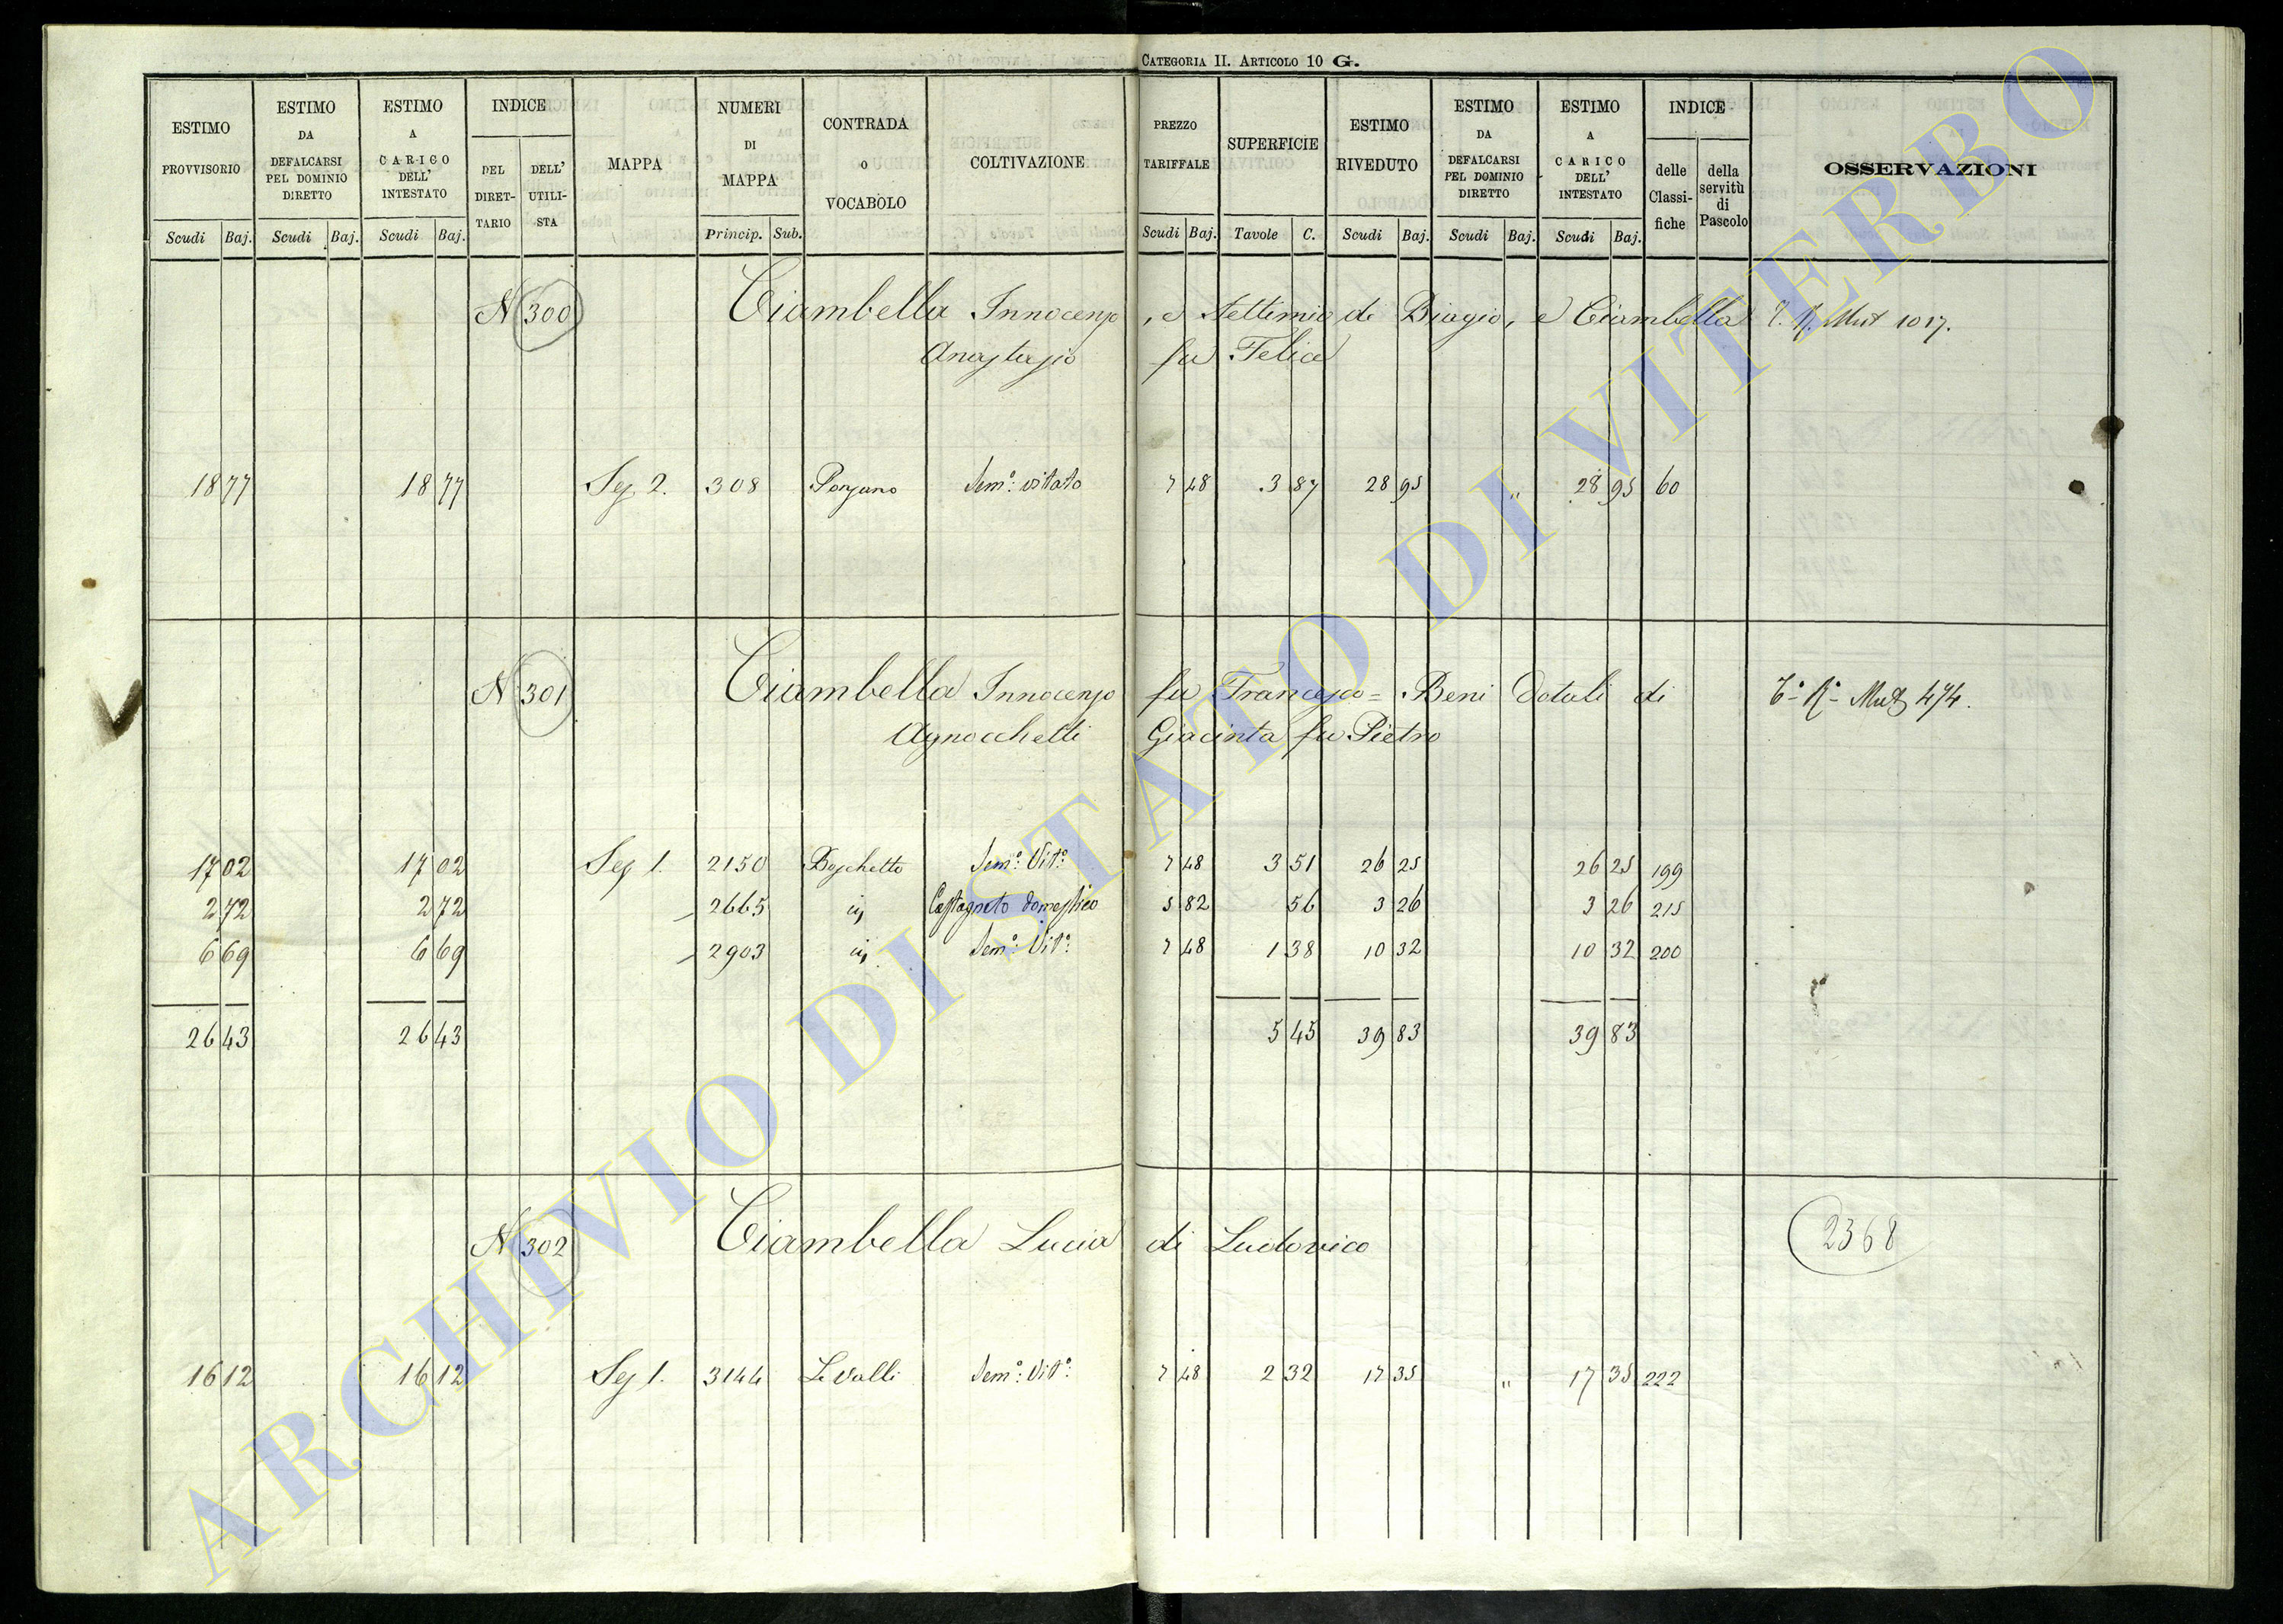 CATEGORIA II. ARTICOLO 10 G.
ESTIMO PROVVISORIO Scudi Baj.
ESTIMO DA DEFALCARSI PEL DOMINIO DIRETTO Scudi Baj.
ESTIMO A CARICO DELL' INTESTATO Scudi Baj.
INDICE DEL DIRET-TARIO DELL' UTILI-STA
MAPPA
NUMERI DI MAPPA Princip. Sub.
CONTRADA o VOCABOLO
COLTIVAZIONE
PREZZO TARIFFALE Scudi Baj.
SUPERFICIE Tavole C.
ESTIMO RIVEDUTO Scudi Baj.
ESTIMO DA DEFALCARSI PEL DOMINIO DIRETTO Scudi Baj.
ESTIMO A CARICO DELL' INTESTATO Scudi Baj.
INDICE delle Classi-fiche della servitù di Pascolo
OSSERVAZIONI
N 300 Ciambella Innocenzo, e Settimio di Biagio, e Ciambella Mut 1017.
Anastasio fu Felice
18 77 18 77 Sez 2. 308 Ponzano Sem.o vitato 7 48 3 87 28 95 " 28 95 60
N 301 Ciambella Innocenzo fu Francesco = Beni Dotali di Mut 474.
Agnocchetti Giacinta fu Pietro
17 02 17 02 Sez 1. 2150 Boschetto Sem.o Vit.o 7 48 3 51 26 25 26 25 199
2 72 2 72 2665 Castagneto domestico 5 82 56 3 26 3 26 215
6 69 6 69 2903 Sem.o Vit.o 7 48 1 38 10 32 10 32 200
26 43 26 43 5 45 39 83 39 83
N 302 Ciambella Lucia di Ludovico 2368
16 12 16 12 Sez 1. 3144 Le Valli Sem.o Vit.o 7 48 2 32 17 35 " 17 35 222
ARCHIVIO DI STATO DI VITERBO